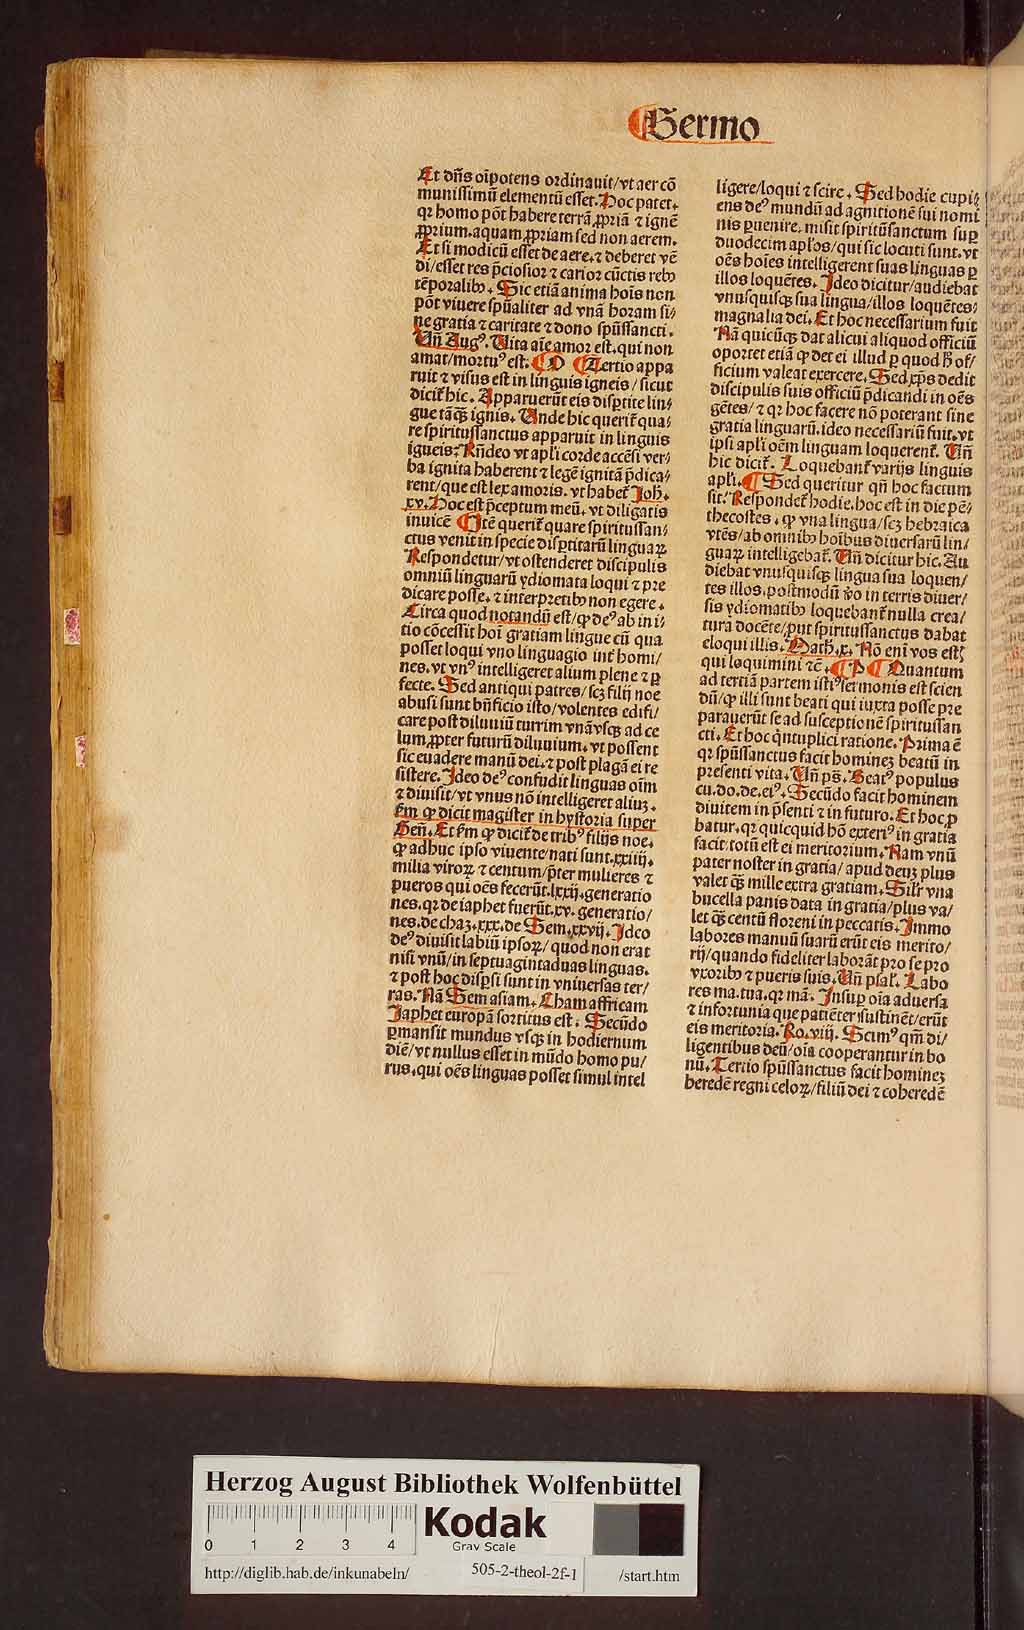 ¶Sermo
Et dñs oĩpotens ordinauit/vt aer cõ
munissimũ elementũ esset. Hoc patet.
qꝛ homo põt habere terrã ꝓpriã ⁊ ignẽ
ꝓprium. aquam ꝓpriam sed non aerem.
Et si modicũ esset de aere. ⁊ deberet vẽ
di/esset res p̃ciosior ⁊ carior cũctis rebꝰ
tẽporalibꝰ. Sic etiã anima hoĩs non
põt viuere spũaliter ad vnã horam si/
ne gratia ⁊ caritate ⁊ dono spũssancti.
Uñ Augꝰ. Uita aĩe amor est. qui non
amat/mortuꝰ est. ¶ O ¶ Tertio appa
ruit ⁊ visus est in linguis igneis/sicut
dicit̃ hic. Apparuerũt eis disp̃tite lin/
gue tãqꝫ ignis. Unde hic querit̃ qua/
re spiritussanctus apparuit in linguis
igneis: Rñdeo vt apl̃i corde accẽsi ver/
ba ignita haberent ⁊ legẽ ignitã p̃dica/
rent/que est lex amoris. vt habet̃ Joh̃.
xv. Hoc est p̃ceptum meũ. vt diligatis
inuicẽ ¶ Itẽ querit̃ quare spiritussan/
ctus venit in specie disp̃titarũ linguaꝝ
Respondetur/vt ostenderet discipulis
omniũ linguarũ ydiomata loqui ⁊ pre
dicare posse. ⁊ interpretibꝰ non egere.
Circa quod notandũ est/ꝙ deꝰ ab in i/
tio cõcessit hoĩ gratiam lingue cũ qua
posset loqui vno linguagio int̃ homi/
nes. vt vnꝰ intelligeret alium plene ⁊ ꝑ
fecte. Sed antiqui patres/scꝫ filij noe
abusi sunt bñficio isto/volentes edifi/
care post diluuiũ turrim vnã vsqꝫ ad ce
lum. ꝓpter futurũ diluuium. vt possent
sic euadere manũ dei. ⁊ post plagã ei re
sistere. Ideo deꝰ confudit linguas oĩm
⁊ diuisit/vt vnus nõ intelligeret aliuꝫ.
Fm̃ ꝙ dicit magister in hystoria super
Geñ. Et fm̃ ꝙ dicit̃ de tribꝰ filijs noe.
ꝙ adhuc ipso viuente/nati sunt. xxiiij.
milia viroꝝ ⁊ centum/p̃ter mulieres ⁊
pueros qui oẽs fecerũt. lxxij. generatio
nes. qꝛ de iaphet fuerũt. xv. generatio/
nes. de chaꝫ. xxx. de Sem. xxvij. Ideo
deꝰ diuisit labiũ ipsoꝝ/quod non erat
nisi vnũ/in septuagintaduas linguas.
⁊ post hoc disp̃si sunt in vniuersas ter/
ras. Nã Sem asiam. Cham affricam
Japhet europã sortitus est. Secũdo
ꝑmansit mundus vsqꝫ in hodiernum
diẽ/vt nullus esset in mũdo homo pu/
rus. qui oẽs linguas posset simul intel
ligere/loqui ⁊ scire. Sed hodie cupi/
ens deꝰ mundũ ad agnitionẽ sui nomi
nis ꝑuenire. misit spiritũsanctum suꝑ
duodecim apl̃os/qui sic locuti sunt. vt
oẽs hoĩes intelligerent suas linguas ꝑ
illos loquẽtes. Ideo dicitur/audiebat
vnusquisqꝫ sua lingua/illos loquẽtes/
magnalia dei. Et hoc necessarium fuit
Nã quicũqꝫ dat alicui aliquod officiũ
oportet etiã ꝙ det ei illud ꝑ quod h̃ of/
ficium valeat exercere. Sed xp̃s dedit
discipulis suis officiũ p̃dicandi in oẽs
gẽtes/⁊ qꝛ hoc facere nõ poterant sine
gratia linguarũ. ideo necessariũ fuit. vt
ipsi apl̃i oẽm linguam loquerent̃. Uñ
hic dicit̃. Loquebant̃ varijs linguis
apl̃i. ¶ Sed queritur qñ hoc factum
sit: Respondet̃ hodie. hoc est in die pẽ/
thecostes. ꝙ vna lingua/scꝫ hebraica
vtẽs/ab omnibꝰ hoĩbus diuersarũ lin/
guaꝝ intelligebat̃. Uñ dicitur hic. Au
diebat vnusquisqꝫ lingua sua loquen/
tes illos. postmodũ ṽo in terris diuer/
sis ydiomatibꝰ loquebant̃ nulla crea/
tura docẽte/ꝓut spiritussanctus dabat
eloqui illis. Math̃. x. Nõ enĩ vos estꝭ
qui loquimini ⁊c̃. ¶ P ¶ Quantum
ad tertiã partem istiꝰ sermonis est scien
dũ/ꝙ illi sunt beati qui iuxta posse pre
parauerũt se ad susceptionẽ spiritussan
cti. Et hoc q̃ntuplici ratione. Prima ẽ
qꝛ spũssanctus facit homineꝫ beatũ in
presenti vita. Uñ ps̃. Beatꝰ populus
cu. do. de. eiꝰ. Secũdo facit hominem
diuitem in p̃senti ⁊ in futuro. Et hoc ꝓ
batur. qꝛ quicquid hõ exteriꝰ in gratia
facit/totũ est ei meritorium. Nam vnũ
pater noster in gratia/apud deuꝫ plus
valet qꝫ̃ mille extra gratiam. Sil̃r vna
bucella panis data in gratia/plus va/
let qꝫ̃ centũ floreni in peccatis. Immo
labores manuũ suarũ erũt eis merito/
rij/quando fideliter laborãt pro se pro
vxoribꝰ ⁊ pueris suis. Uñ psal̃. Labo
res ma. tua. qꝛ mã. Insuꝑ oĩa aduersa
⁊ infortunia que patiẽter sustinẽt/erũt
eis meritoria. Ro. viij. Scimꝰ qm̃ di/
ligentibus deũ/oĩa cooperantur in bo
nũ. Tertio spũssanctus facit homineꝫ
heredẽ regni celoꝝ/filiũ dei ⁊ coheredẽ
Herzog August Bibliothek Wolfenbüttel
0 1 2 3 4
Kodak
Gray Scale
http://diglib.hab.de/inkunabeln/
505-2-theol-2f-1
/start.htm